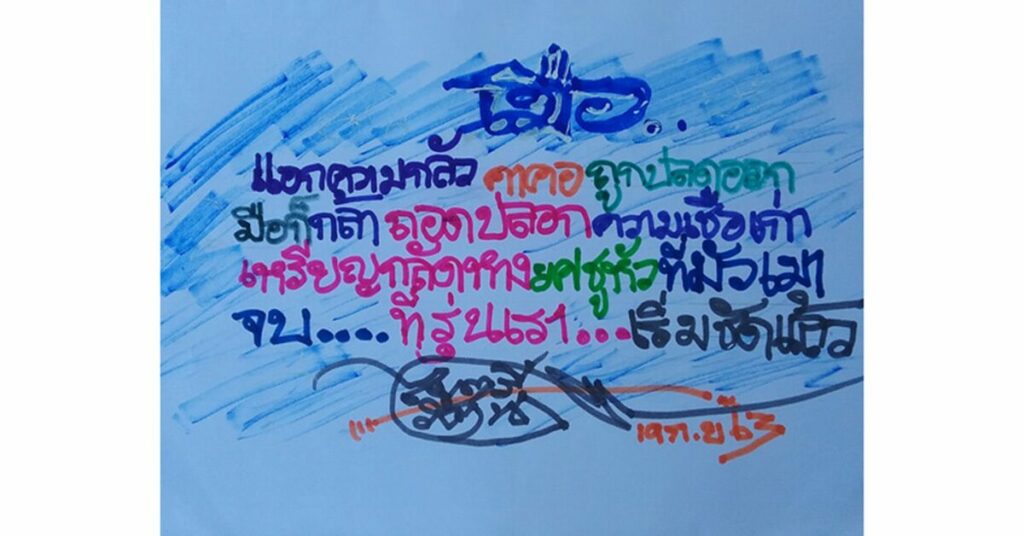 เมื่อ..
แอกความกลัว คาคอ ถูกปลดออก
มือก็กล้า ถอดปลอก ความเชื่อเก่า
เหรียญกลัดหาง ยศชูหัว ที่มัวเมา
จบ....ที่รุ่นเรา...เริ่มชัดแล้ว
19 ก.ย 63